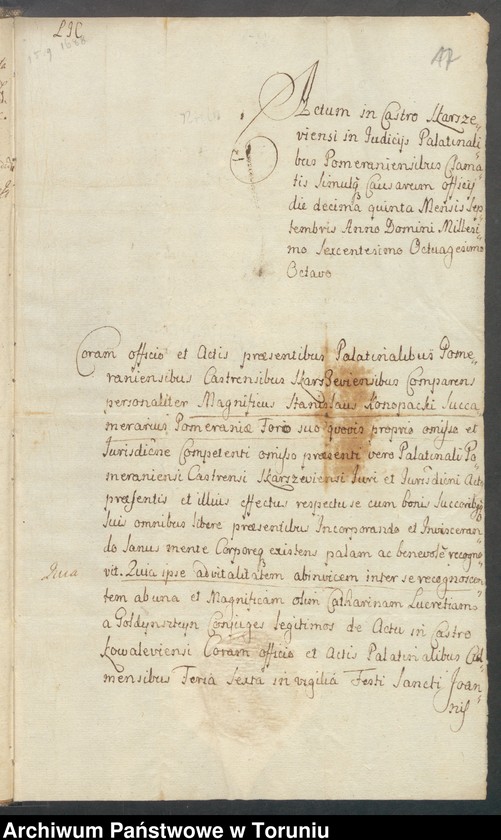 LIC
15 9 1688
17
Actum in Castro Skarsze-
viensi in Judicijs Palatinali
bus Pomeraniensibus Clama
tis Simulq Causarum officij
die decima quinta Mensis Sep
tembris Anno Domini Millesi
mo Sexcentesimo Octuagesimo
Octavo
Coram officio et Actis præsentibus Palatinalibus Pome-
raniensibus Castrensibus SkarSzeviensibus Comparens
personaliter Magnificus Stanislaus Konopacki Succa
merarius Pomeraniæ Foro suo quovis proprio omisso et
Jurisdictne Competenti omisso præsenti vero Palatinali Po
meraniensi Castrensi Skarszeviensi Juri et Jurisdictni Actis
præsentis et illius effectus respectu se cum bonis Succoribq
suis omnibus libere præsentibus Incorporando et Invisceran
do Sanus mente Corporeq existens palam ac benevole recogno
vit. Quia ipse advitalitatem abinvicem inter se recognoscen
Quia
tem ab una et Magnificam olim Catharinam Lucretiam
a Goldynsztyn Conjuges legitimos de Actu in Castro
Kowaleviensi Coram officio et Actis Palatinalibus Cul
mensibus Feria Sexta in vigilia Festi Sancti Joan-
nis
Archiwum Państwowe w Toruniu